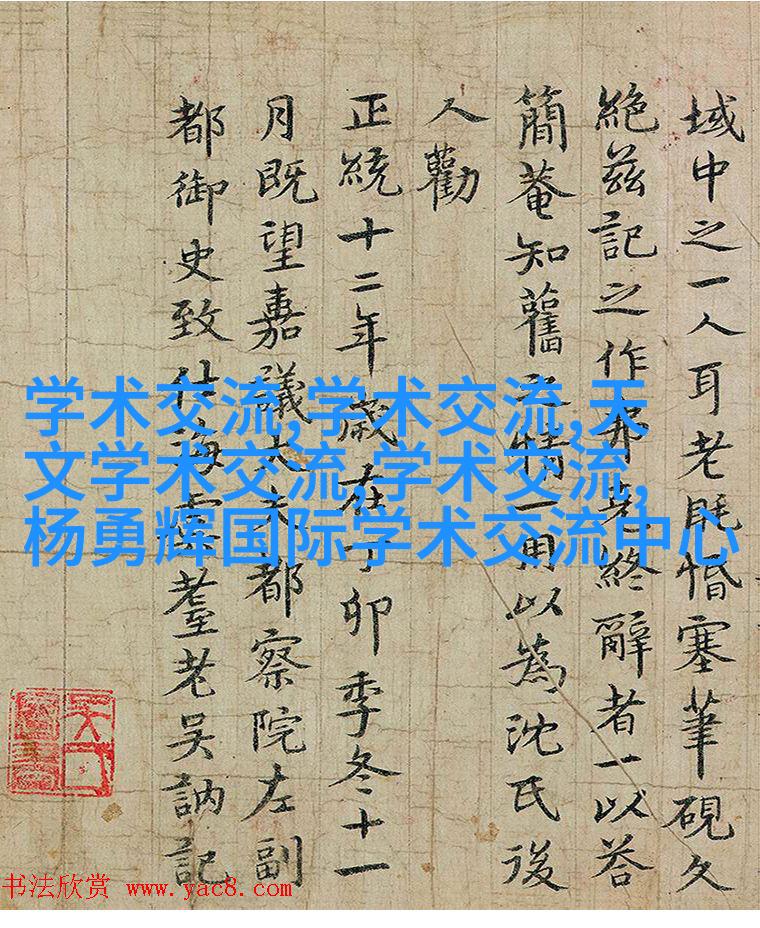 域中之一人耳老既惛塞筆硯久
絕茲記之作弗克終辭者一以荅
簡菴知舊之情一用以為沈氏後
人勸
正統十二年歲在丁卯季冬十一
月既望嘉議大夫都察院左副
都御史致仕海虞耄老吳訥記
学术交流,学术交流,天
文学术交流,学术交流,
杨勇辉国际学术交流中心
书法欣赏 www.yac8.com